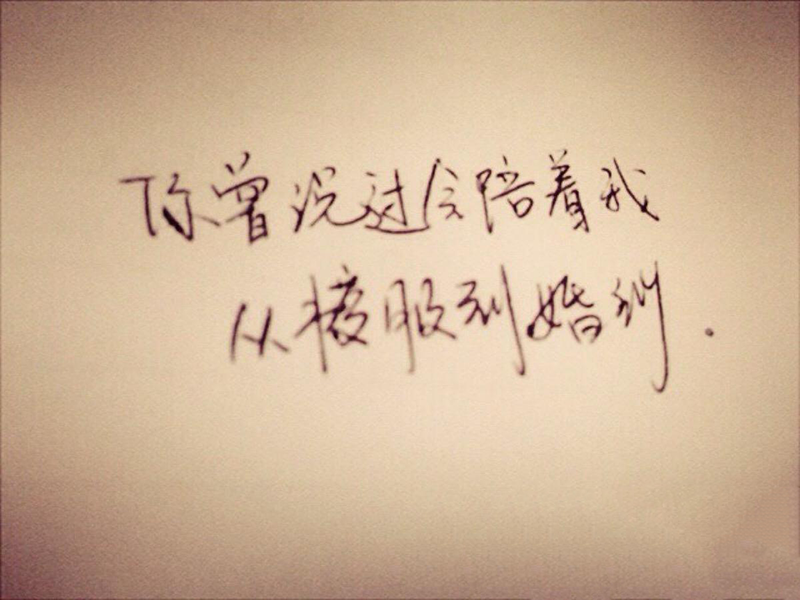 你曾说过会陪着我
从校服到婚纱.